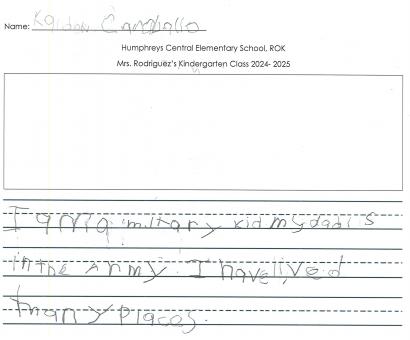 Name: Kaidan Caraballo
Humphreys Central Elementary School, ROK
Mrs. Rodriguez's Kindergarten Class 2024- 2025
I am a miltary kid my dad i s
in the army. I have lived
many places.